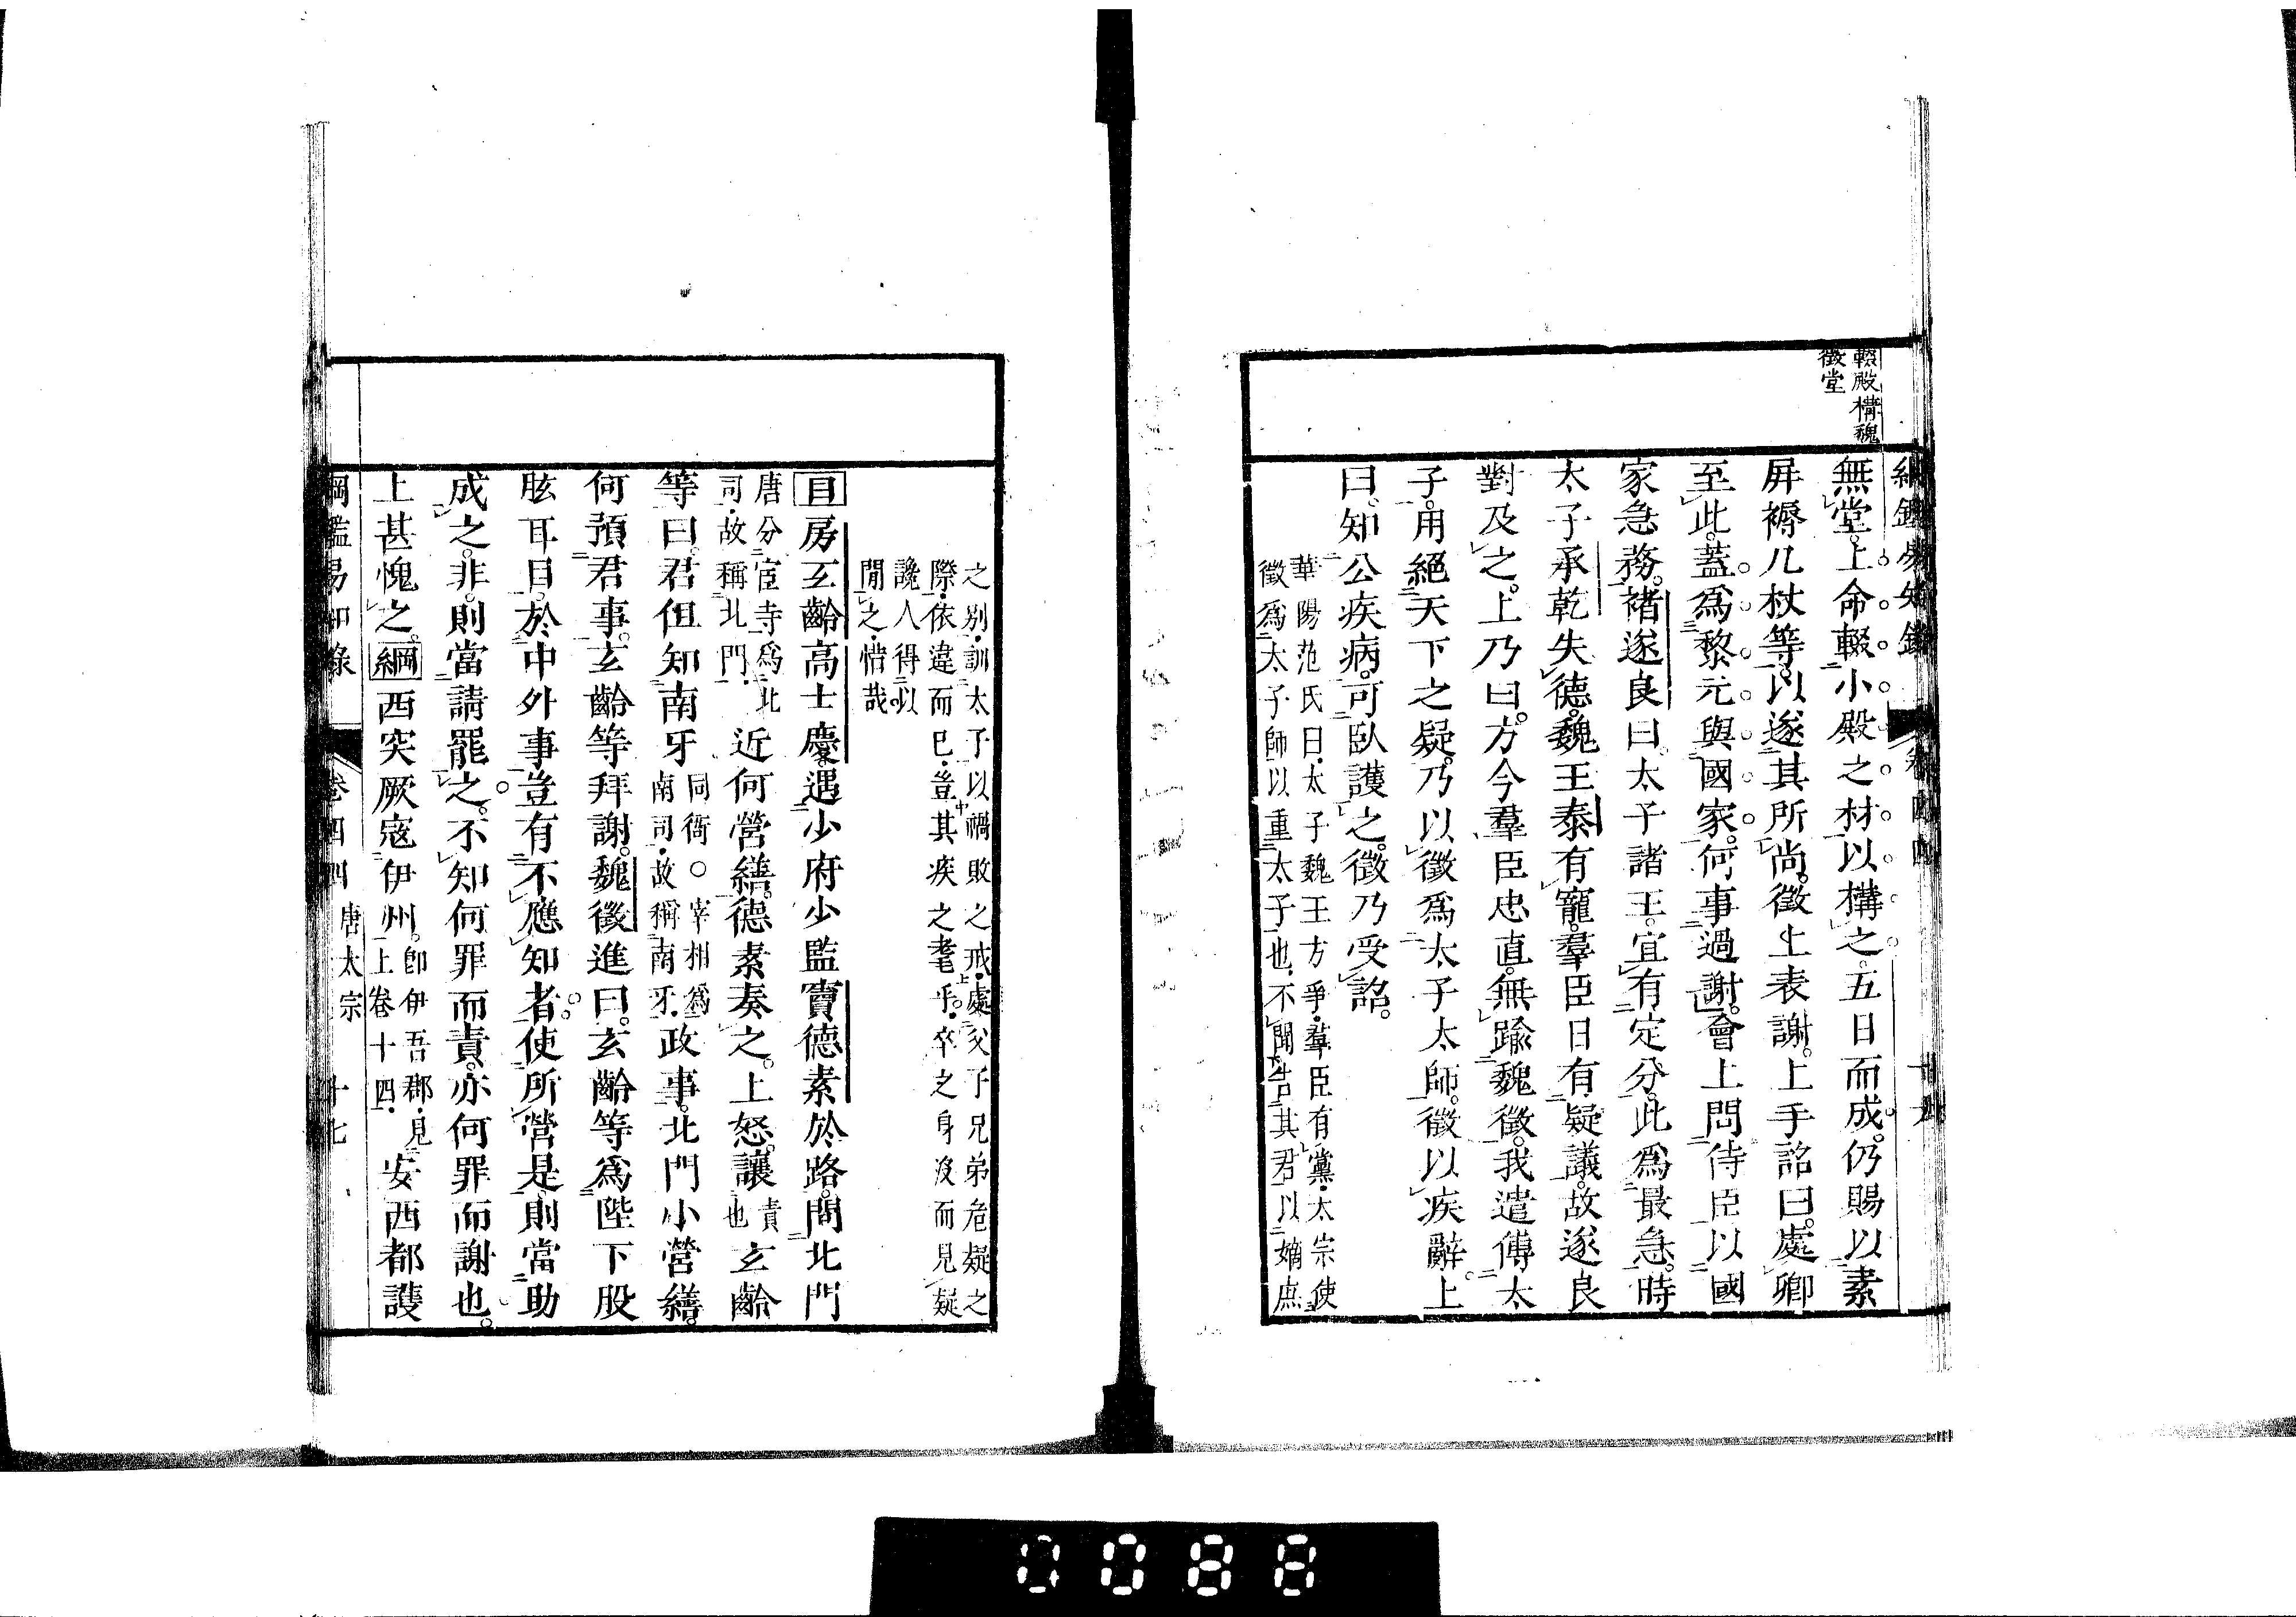 輟殿構魏
徵堂
無堂。上命輟小殿之材以構之。五日而成。仍賜以素
屏褥几杖等。以遂其所尚。徵上表謝。上手詔曰。處卿
至此。蓋爲黎元與國家。何事過謝。會上問侍臣以國
家急務。褚遂良曰。太子諸王。宜有定分。此爲最急。時
太子承乾失德。魏王泰有寵。羣臣日有疑議。故遂良
對及之。上乃曰。方今羣臣忠直。無踰魏徵。我遣傅太
子。用絕天下之疑。乃以徵爲太子太師。徵以疾辭。上
曰。知公疾病。可臥護之。徵乃受詔。
華陽范氏曰．太子魏王方爭．羣臣有黨．太宗使
徵爲太子師以重太子也．不聞告其君以嫡庶
之别．訓太子以禍敗之戒．處父子兄弟危疑之
際．依違而已．豈其疾之耄乎．卒之身没而見疑
讒人得以
閒之．惜哉
目房玄齡高士廉遇少府少監竇德素於路。問北門
唐分宦寺爲北
司．故稱北門．
近何營繕。德素奏之。上怒。讓
責
也
玄齡
等曰。君但知南牙
同衙○宰相爲
南司．故稱南牙．
政事。北門小營繕。
何預君事。玄齡等拜謝。魏徵進曰。玄齡等爲陛下股
肱耳目。於中外事。豈有不應知者。使所營是。則當助
成之。非。則當請罷之。不知何罪而責。亦何罪而謝也。
上甚愧之。綱西突厥寇伊州。
卽伊吾郡．見
上卷十四．
安西都護
綱鑑易知錄
卷四四
唐太宗
十七